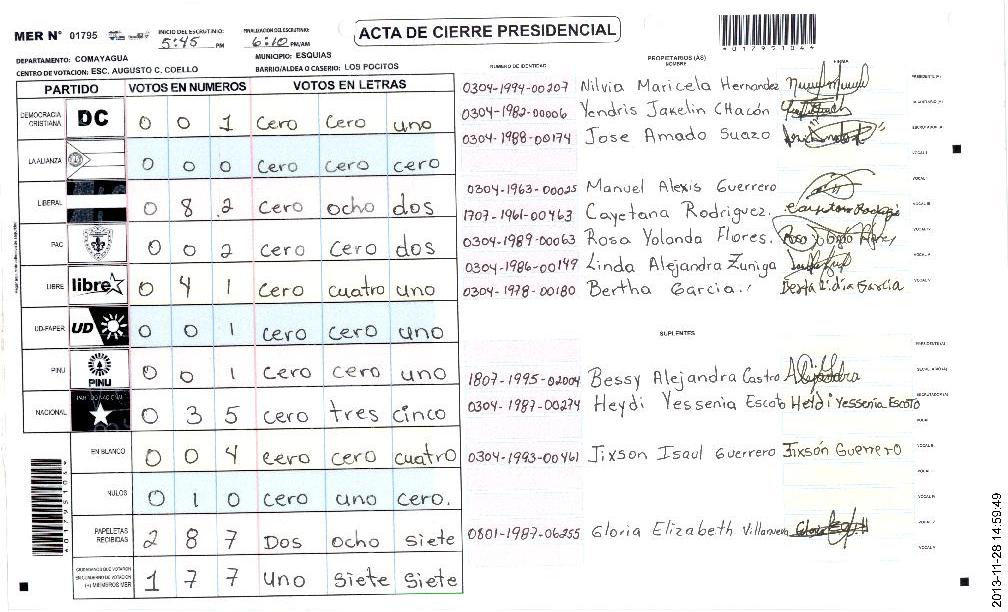 MER N° 01795
INICIO DEL ESCRUTINIO: 5:45 PM
FINALIZACION DEL ESCRUTINIO: 6:10 PM/AM
ACTA DE CIERRE PRESIDENCIAL
DEPARTAMENTO: COMAYAGUA
MUNICIPIO: ESQUIAS
CENTRO DE VOTACION: ESC. AUGUSTO C. COELLO
BARRIO/ALDEA O CASERIO: LOS POCITOS
PARTIDO VOTOS EN NUMEROS VOTOS EN LETRAS
DEMOCRACIA CRISTIANA DC 0 0 1 cero cero uno
LA ALIANZA 0 0 0 cero cero cero
LIBERAL 0 8 2 cero ocho dos
PAC 0 0 2 cero cero dos
LIBRE libre 0 4 1 cero cuatro uno
UD-FAPER UD 0 0 1 cero cero uno
PINU PINU 0 0 1 cero cero uno
NACIONAL 0 3 5 cero tres cinco
EN BLANCO 0 0 4 cero cero cuatro
NULOS 0 1 0 cero uno cero.
PAPELETAS RECIBIDAS 2 8 7 Dos ocho siete
CIUDADANOS QUE VOTARON EN CUADERNO DE VOTACION (+) MIEMBROS MER 1 7 7 uno siete siete
NUMERO DE IDENTIDAD PROPIETARIOS (AS) NOMBRE FIRMA
0304-1994-00207 Nilvia Maricela Hernandez
0304-1982-00006 Yendris Jakelin CHacón
0304-1988-00174 Jose Amado Suazo
0304-1963-00025 Manuel Alexis Guerrero
1707-1961-00463 Cayetana Rodriguez.
0304-1989-00063 Rosa Yolanda Flores.
0304-1986-00149 Linda Alejandra Zuniga
0304-1978-00180 Bertha Garcia.
SUPLENTES
1807-1995-02004 Bessy Alejandra Castro
0304-1987-00274 Heydi Yessenia Escoto Heidi Yessenia Escoto
0304-1993-00461 Jixson Isaul Guerrero Jixsón Guerrero
0801-1987-06255 Gloria Elizabeth Villanueva
2013-11-28 14:59:49